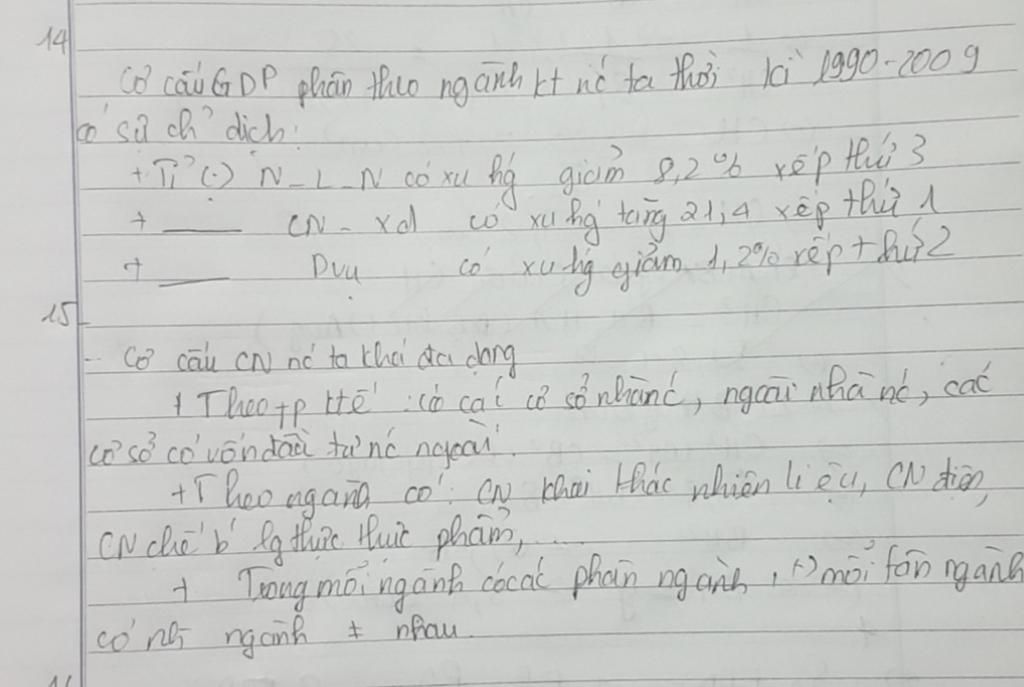 14
Cơ cấu GDP phân theo ngành kt nc ta thời kì 1990-2009
có sự ch' dịch:
+ Tỉ (.) N-L-N có xu hg giảm 8,2% xếp thứ 3
+ ___ CN-xd có xu hg tăng 21,4 xếp thứ 1
+ ___ Dvụ có xu hg giảm 1,2% xếp thứ 2
15
- Cơ cấu CN nc ta khá đa dạng
+ Theo tp ktế: có các cơ sở nhà nc, ngoài nhà nc, các
cơ sở có vốn đầu tư nc ngoài.
+ Theo ngành có: CN khai thác nhiên liệu, CN điện,
CN chế b' lg thực thực phẩm, ...
+ Trong mỗi ngành có các phân ngành, (.) mỗi phân ngành
có nh ngành ≠ nhau.